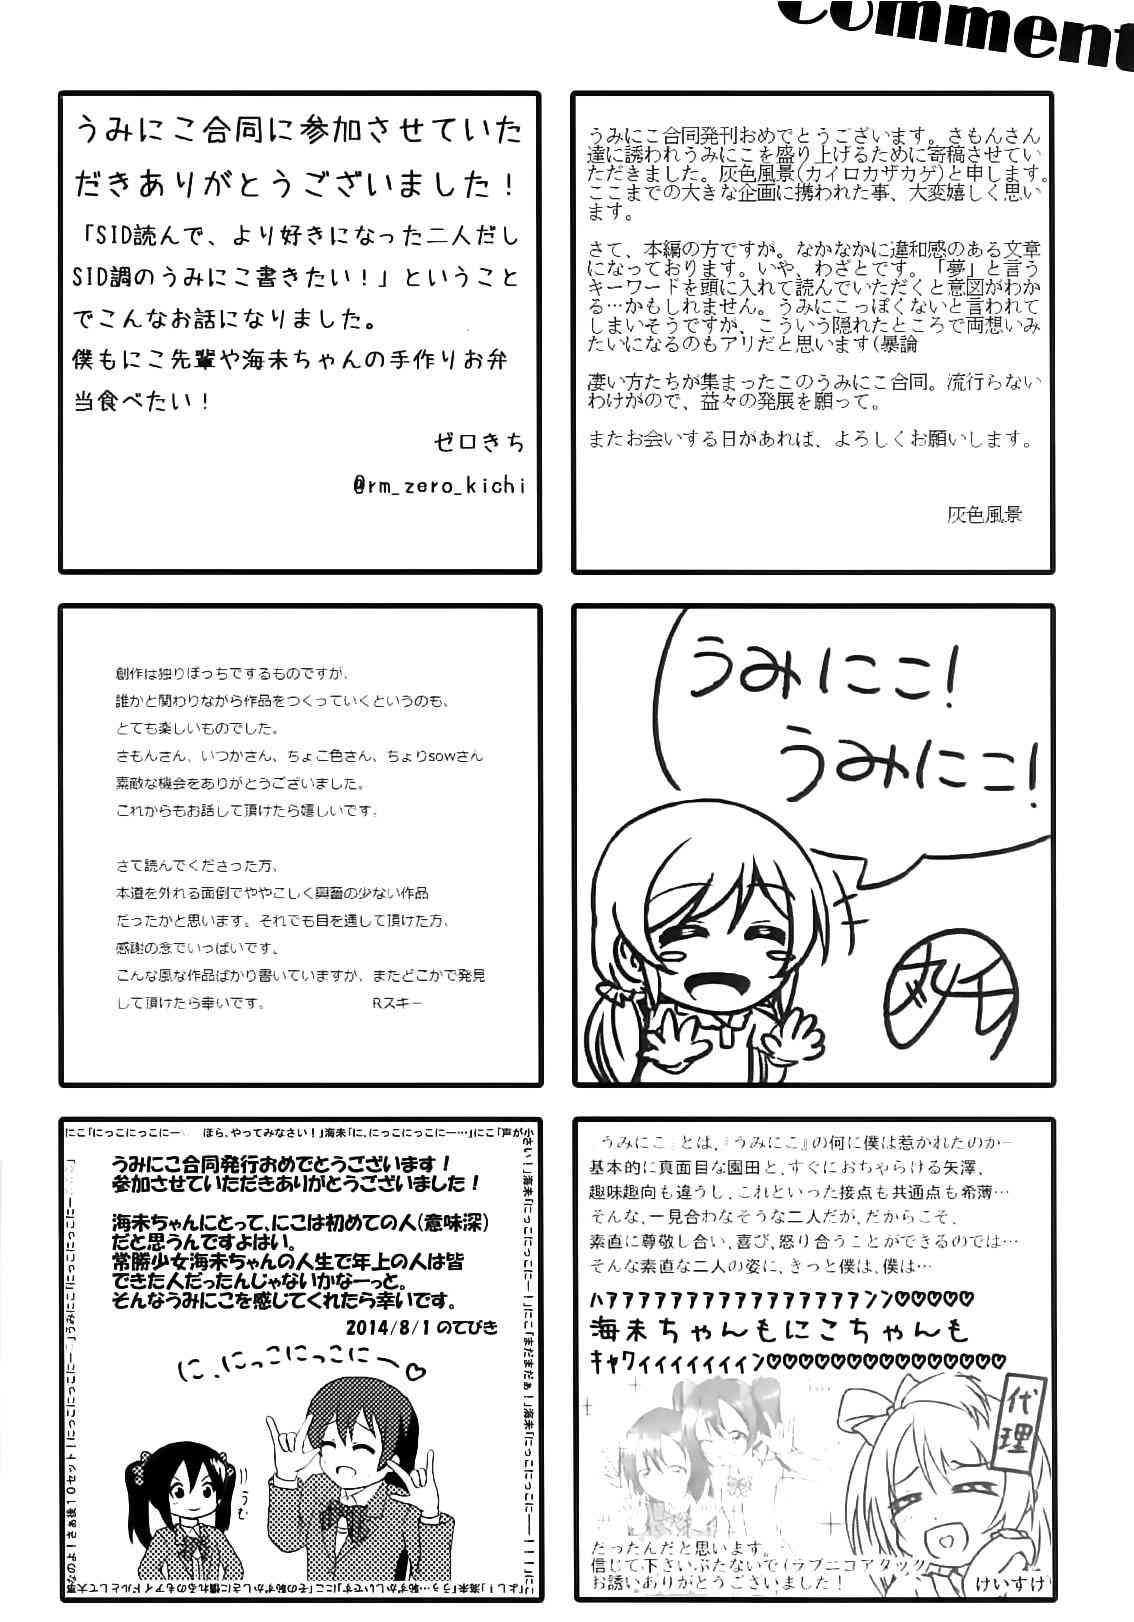 Comment
うみにこ合同に参加させていた
だきありがとうございました！
「SID読んで、より好きになった二人だし
SID調のうみにこ書きたい！」ということ
でこんなお話になりました。
僕もにこ先輩や海未ちゃんの手作りお弁
当食べたい！
ゼロきち
@rm_zero_kichi
うみにこ合同発刊おめでとうございます。さもんさん
達に誘われうみにこを盛り上げるために寄稿させてい
ただきました。灰色風景(カイロカザカゲ)と申します。
ここまでの大きな企画に携われた事、大変嬉しく思い
ます。
さて、本編の方ですが。なかなかに違和感のある文章
になっております。いや、わざとです。「夢」と言う
キーワードを頭に入れて読んでいただくと意図がわか
る…かもしれません。うみにこっぽくないと言われて
しまいそうですが、こういう隠れたところで両想いみ
たいになるのもアリだと思います(暴論
凄い方たちが集まったこのうみにこ合同。流行らない
わけがので、益々の発展を願って。
またお会いする日があれば、よろしくお願いします。
灰色風景
創作は独りぼっちでするものですが、
誰かと関わりながら作品をつくっていくというのも、
とても楽しいものでした。
さもんさん、いつかさん、ちょこ色さん、ちょりsowさん
素敵な機会をありがとうございました。
これからもお話して頂けたら嬉しいです。
さて読んでくださった方、
本道を外れる面倒でややこしく興奮の少ない作品
だったかと思います。それでも目を通して頂けた方、
感謝の念でいっぱいです。
こんな風な作品ばかり書いていますが、またどこかで発見
して頂けたら幸いです。 Rスキー
うみにこ！
うみにこ！
にこ「にっこにっこにー
ほら、やってみなさい！」海未「に、にっこにっこにー…」にこ「声が小
さい！」海未「にっこにっこにー！」にこ「まだまだぁ！」海未「にっこにっこにー――！！！」に
うみにこ合同発行おめでとうございます！
参加させていただきありがとうございました！
海未ちゃんにとって、にこは初めての人(意味深)
だと思うんですよはい。
常勝少女海未ちゃんの人生で年上の人は皆
できた人だったんじゃないかなーっと。
そんなうみにこを感じてくれたら幸いです。
2014/8/1 のてびき
に、にっこにっこにー♡
うむ
こ「よし！」海未「うぅ…恥ずかしいです」にこ「その恥ずかしさに慣れるのもアイドルとして大
事なのよ！さぁ後１０セット！
『うみにこ』とは、『うみにこ』の何に僕は惹かれたのか―
基本的に真面目な園田と、すぐにおちゃらける矢澤、
趣味趣向も違うし、これといった接点も共通点も希薄…
そんな、一見合わなそうな二人だが、だからこそ、
素直に尊敬し合い、喜び、怒り合うことができるのでは…
そんな素直な二人の姿に、きっと僕は、僕は…
ハァァァァァァァァァァァァァァァァンン♡♡♡♡♡
海未ちゃんもにこちゃんも
キャワィィィィィィィン♡♡♡♡♡♡♡♡♡♡♡♡♡♡♡
代理
だったんだと思います。
信じて下さいぶたないで(ラブニコアタック
お誘いありがとうございました！
けいすけ